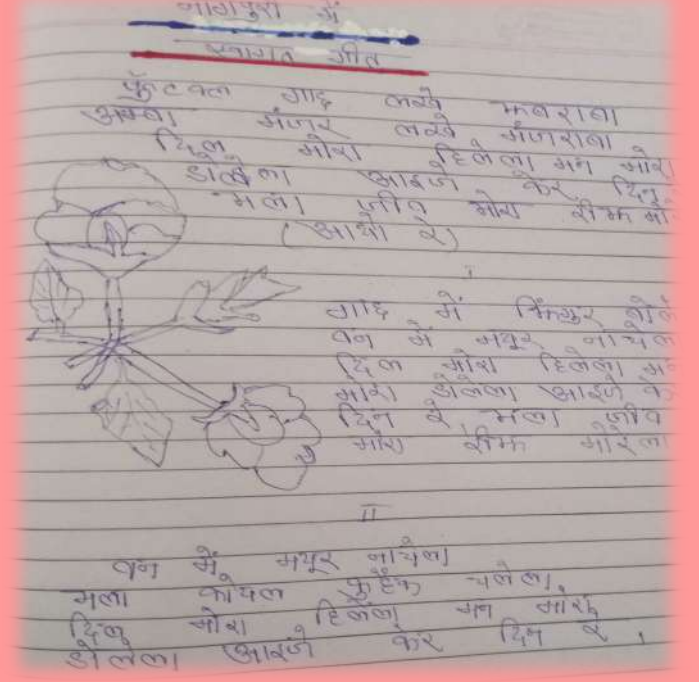 नागपुरी में
स्वागत गीत
फुटकल गाछ लखे झबराबा
अम्बा मंजर लखे मंजराबा
दिल मोरा हिलेला मन मोरा
डोलेला आइजे केर दिन
मला जीव मोरा रीझ
(आयो रे)
I
गाछ में झिंगुर
वन में मयूर नाचेल
दिल मोरा हिलेला
मोरा डोलेला आइजे
दिन रे मला जीव
मोरा रीझ मोरेला
II
वन में मयूर नाचेला
मला कोयल कुहूक चलेला
दिल मोरा हिलेला मन मोरा
डोलेला आइजे केर दिन रे